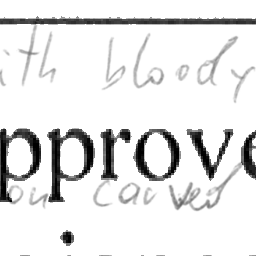 ith bloody
pprove
on carved